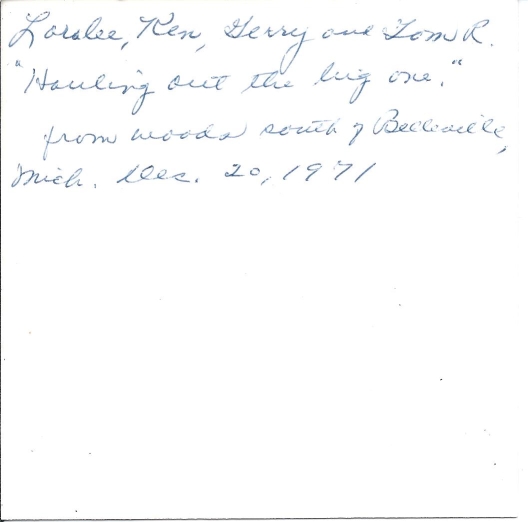 Loralee, Ken, Gerry and Tom R.
"Hauling out the big one."
from woods south of Belleville,
Mich. Dec. 20, 1971